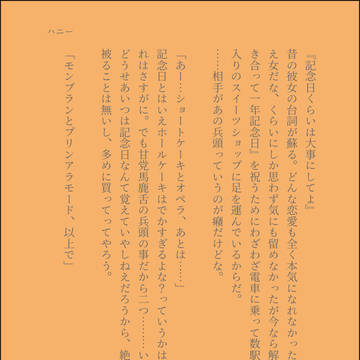 ハニー
『記念日くらいは大事にしてよ』
昔の彼女の台詞が蘇る。どんな恋愛も全く本気になれなかった
え女だな、くらいにしか思わず気にも留めなかったが今なら解
き合って一年記念日』を祝うためにわざわざ電車に乗って数駅
入りのスイーツショップに足を運んでいるからだ。
……相手があの兵頭っていうのが癪だけどな。
「あー…ショートケーキとオペラ、あとは……」
記念日とはいえホールケーキはでかすぎるよな？っていうかは
れはさすがに。でも甘党馬鹿舌の兵頭の事だから二つ……い
どうせあいつは記念日なんて覚えていやしねえだろうから、絶
被ることは無いし、多めに買ってってやろう。
「モンブランとプリンアラモード、以上で」